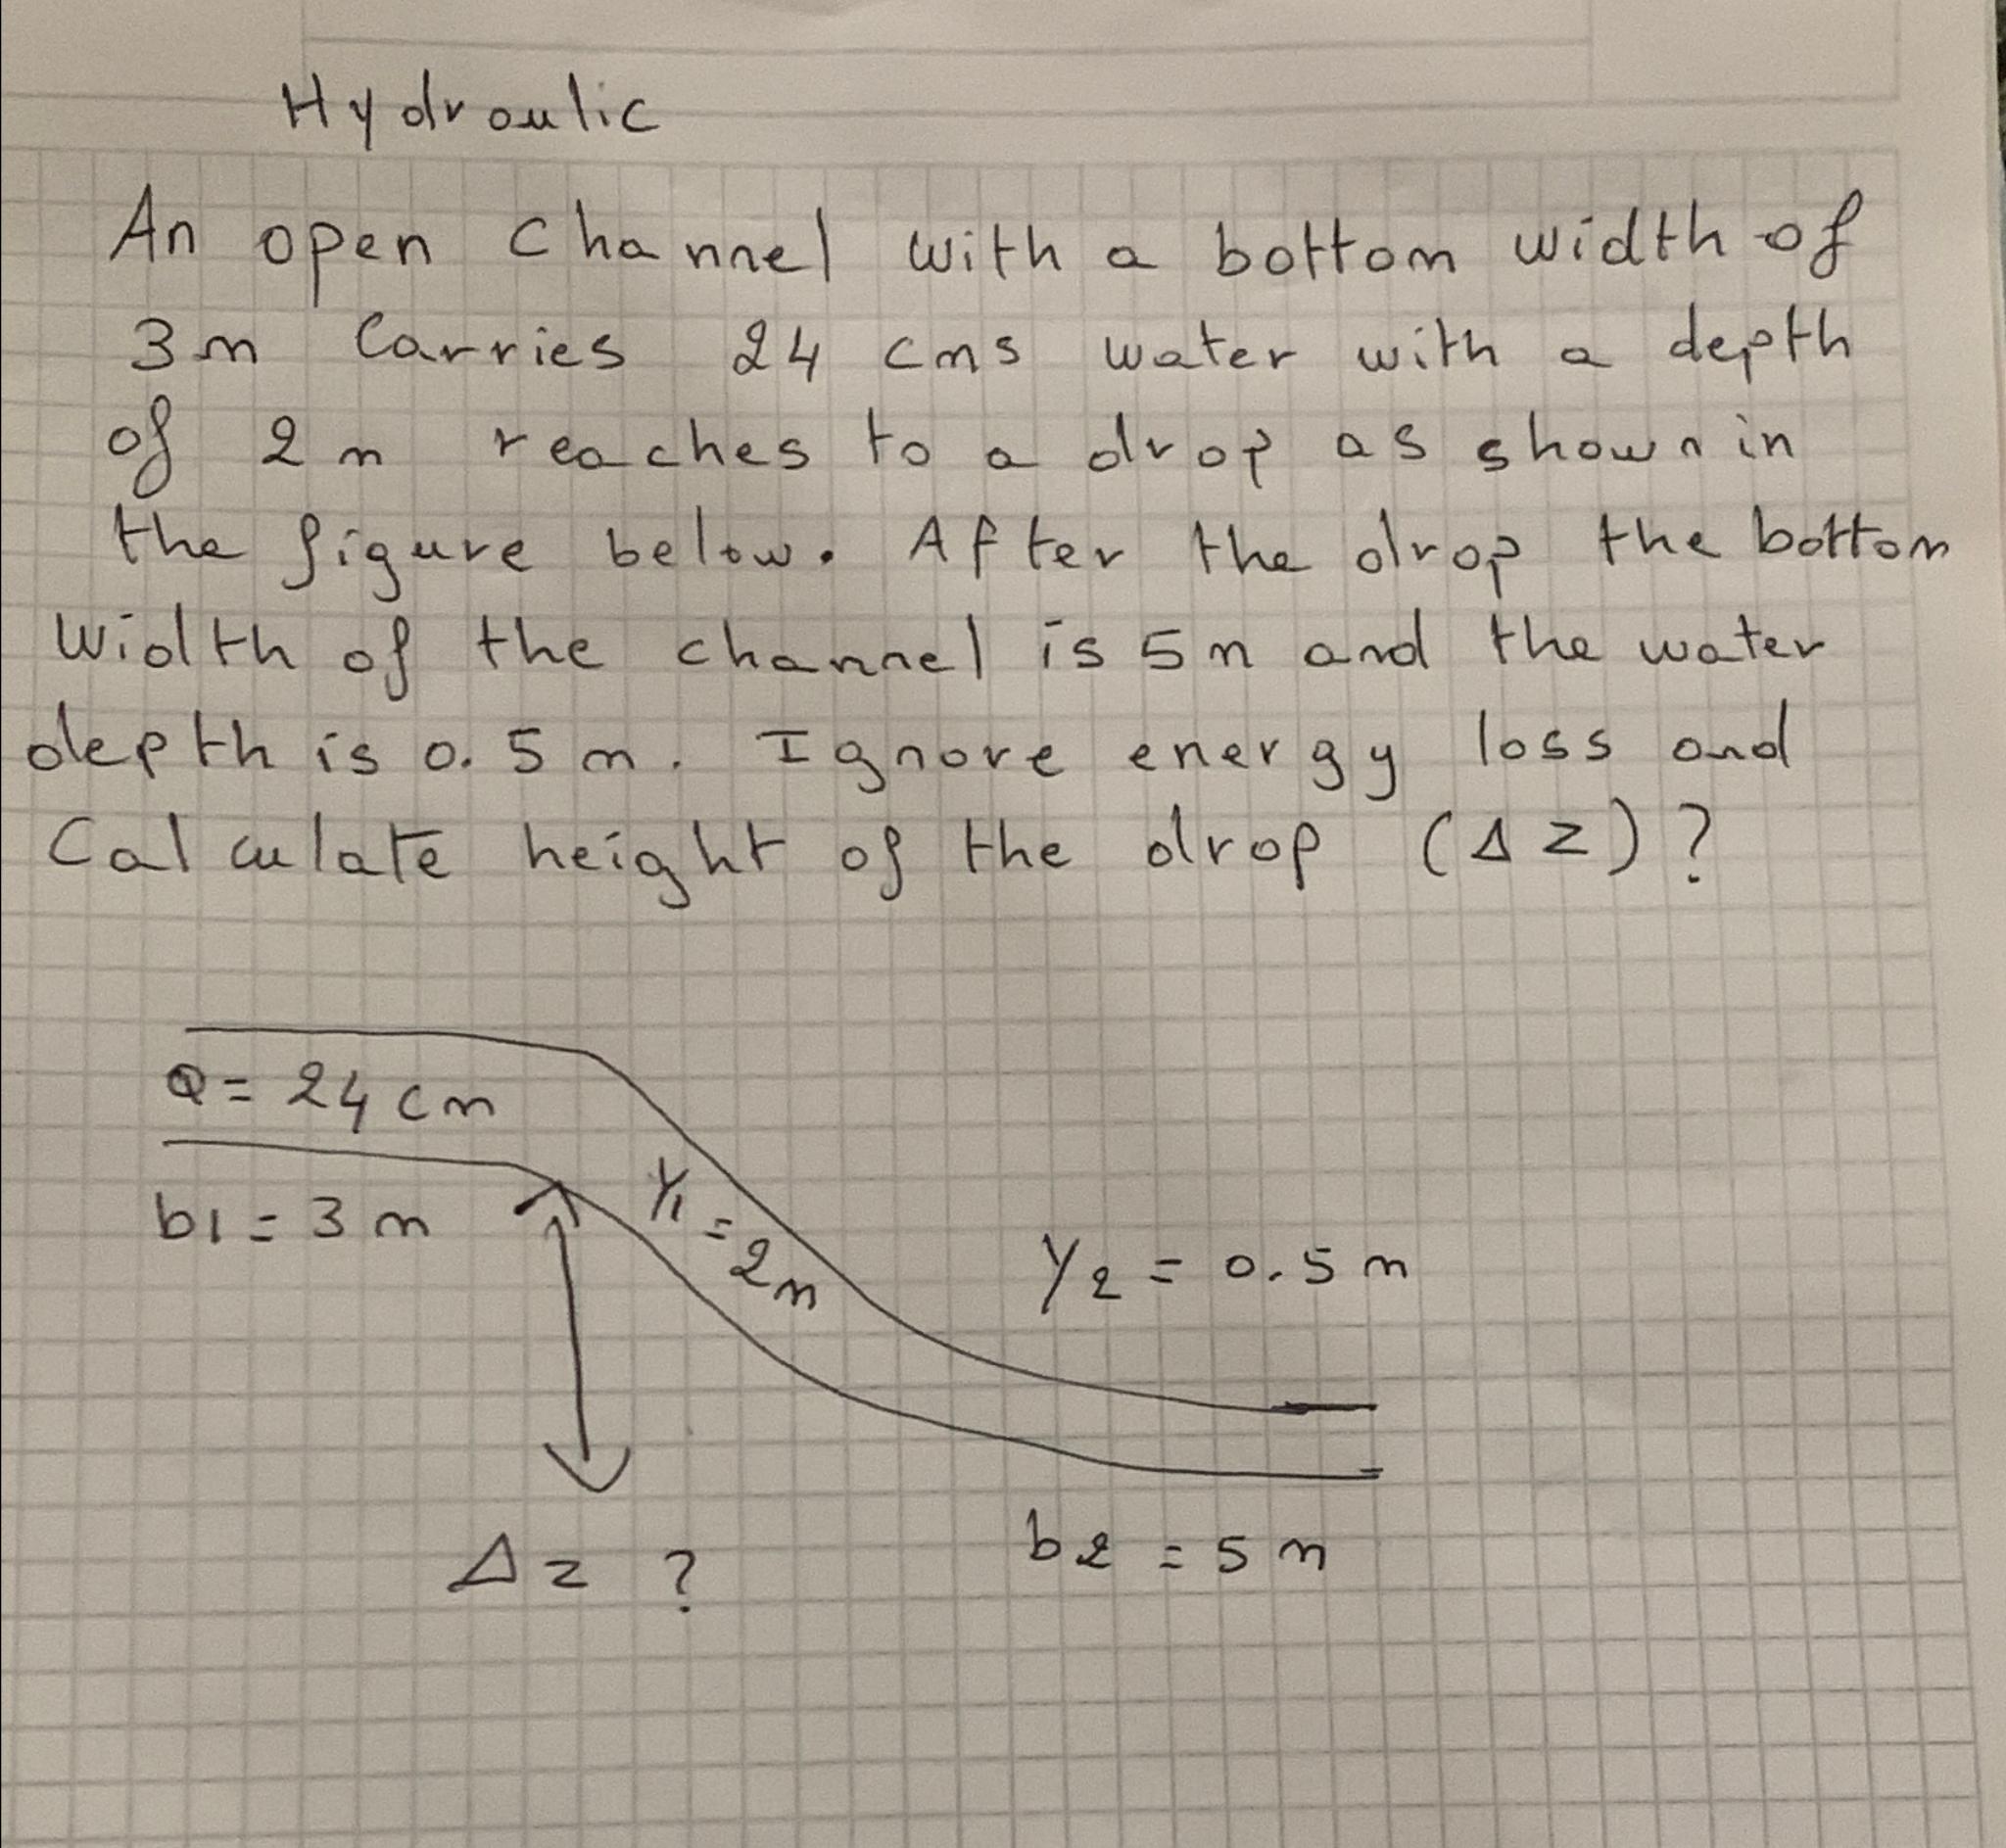 Hydraulic
An open channel with a bottom width of
3m Carries 24 cms water with a depth
of 2m reaches to a drop as shown in
the figure below. After the drop the bottom
width of the channel is 5m and the water
depth is 0.5m. Ignore energy loss and
Calculate height of the drop (Δz)?
Q = 24 cm
b1 = 3m
y1 = 2m
y2 = 0.5m
Δz ?
b2 = 5m